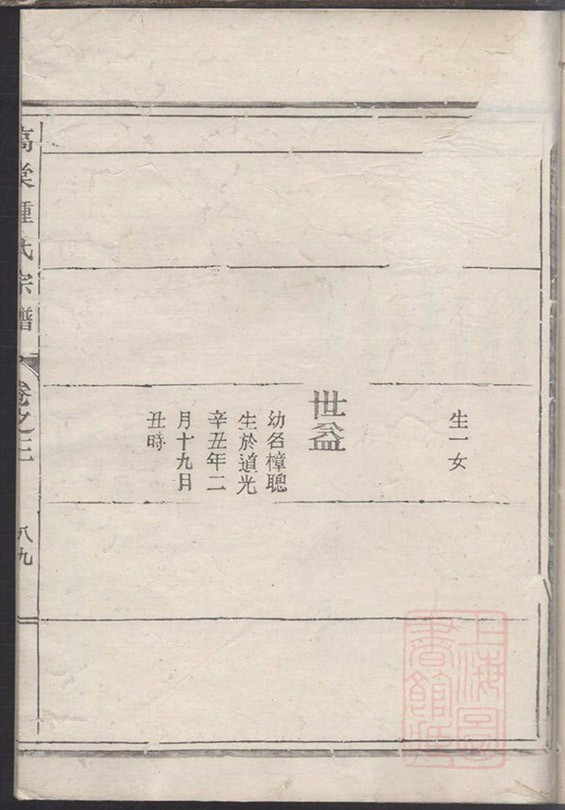 生一女
世益
幼名樟聰
生於道光
辛丑年二
月十九日
丑時
高棠鍾氏宗譜
卷之二
八九
上海圖
書館藏